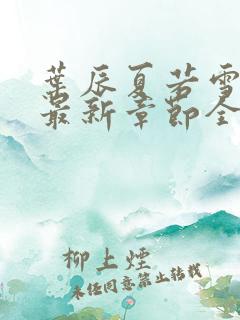 葉辰夏若雪
最新章節全
柳上煙
未经同意禁止转载